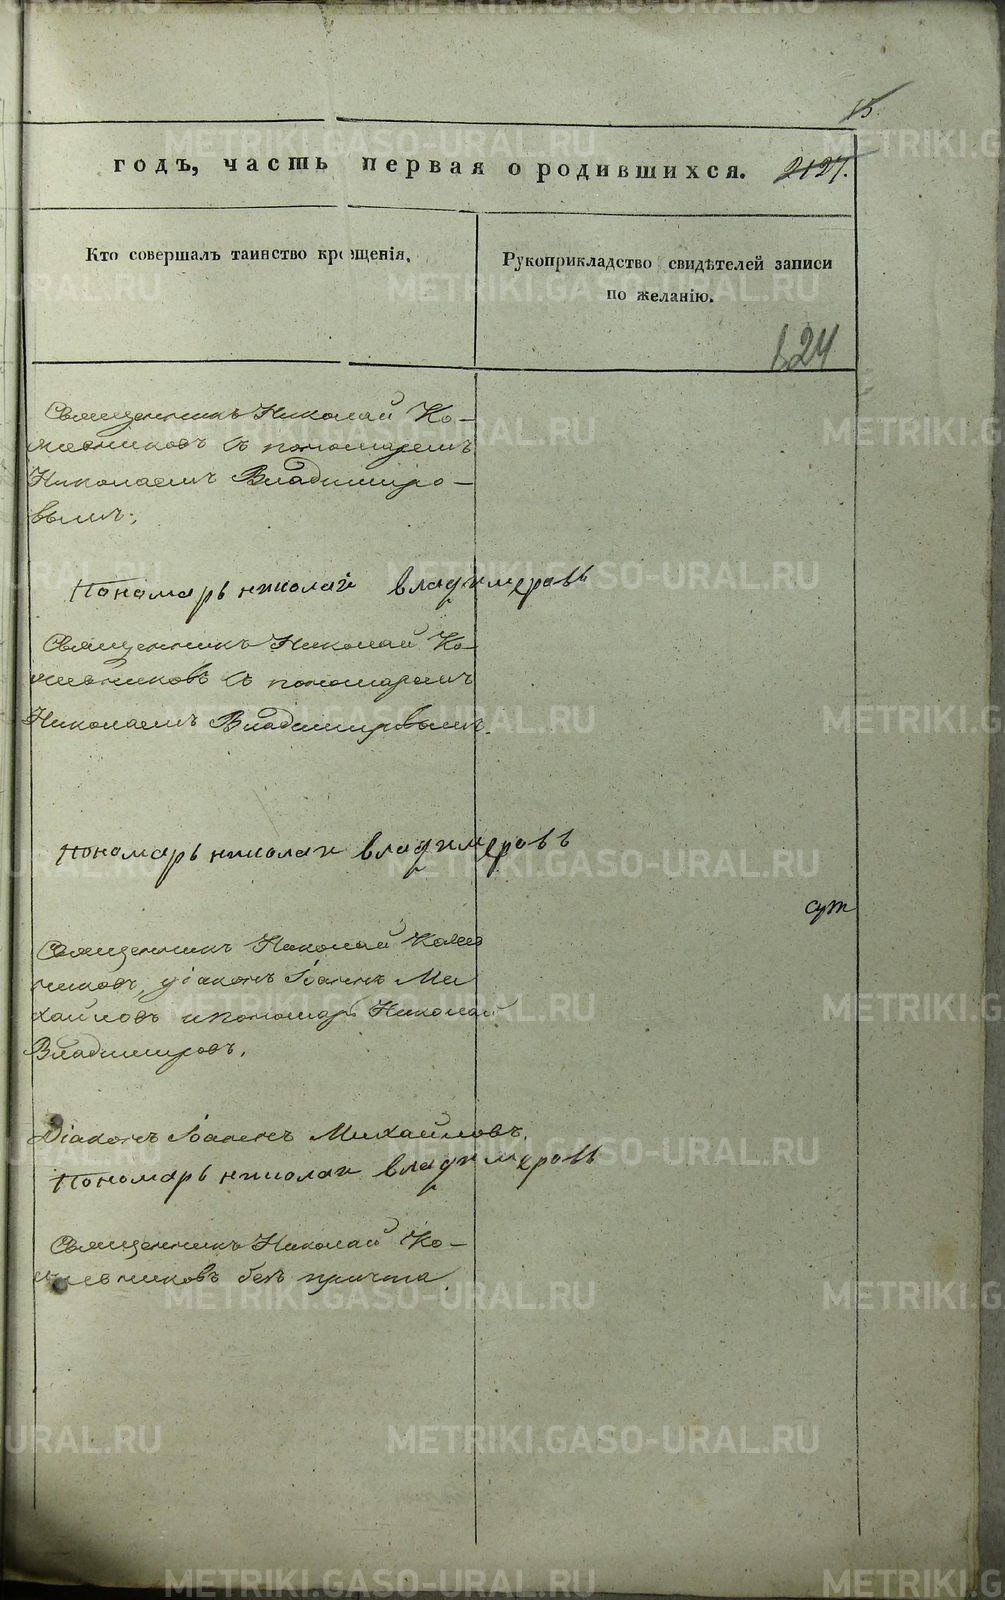 15.
годъ, часть первая о родившихся. 2127.
Кто совершалъ таинство крещенія.
Рукоприкладство свидѣтелей записи
по желанію.
124
Священникъ Николай Ко-
жевниковъ съ пономаремъ
Николаемъ Владиміро-
вымъ.
Пономарь николай владимеровъ
Священникъ Николай Ко-
жевниковъ съ пономаремъ
Николаемъ Владиміровымъ.
пономарь николаи владимеровъ
Священникъ Николай Кожев
никовъ, діаконъ Іоаннъ Ми
хайловъ и пономарь Николай
Владиміровъ.
Діаконъ Іоаннъ Михайловъ.
Пономарь николаи владимеровъ
Священникъ Николай Ко-
жевниковъ безъ причта
METRIKI.GASO-URAL.RU